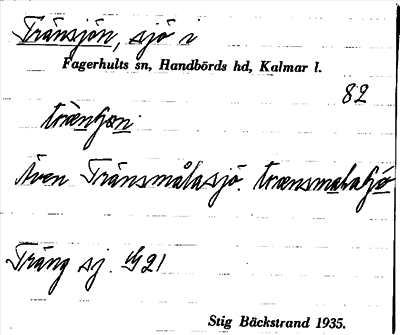 Tränsjön, sjö i
Fagerhults sn, Handbörds hd, Kalmar l.
82
Även Tränsmålasjö.
Träng sj. G21
Stig Bäckstrand 1935.